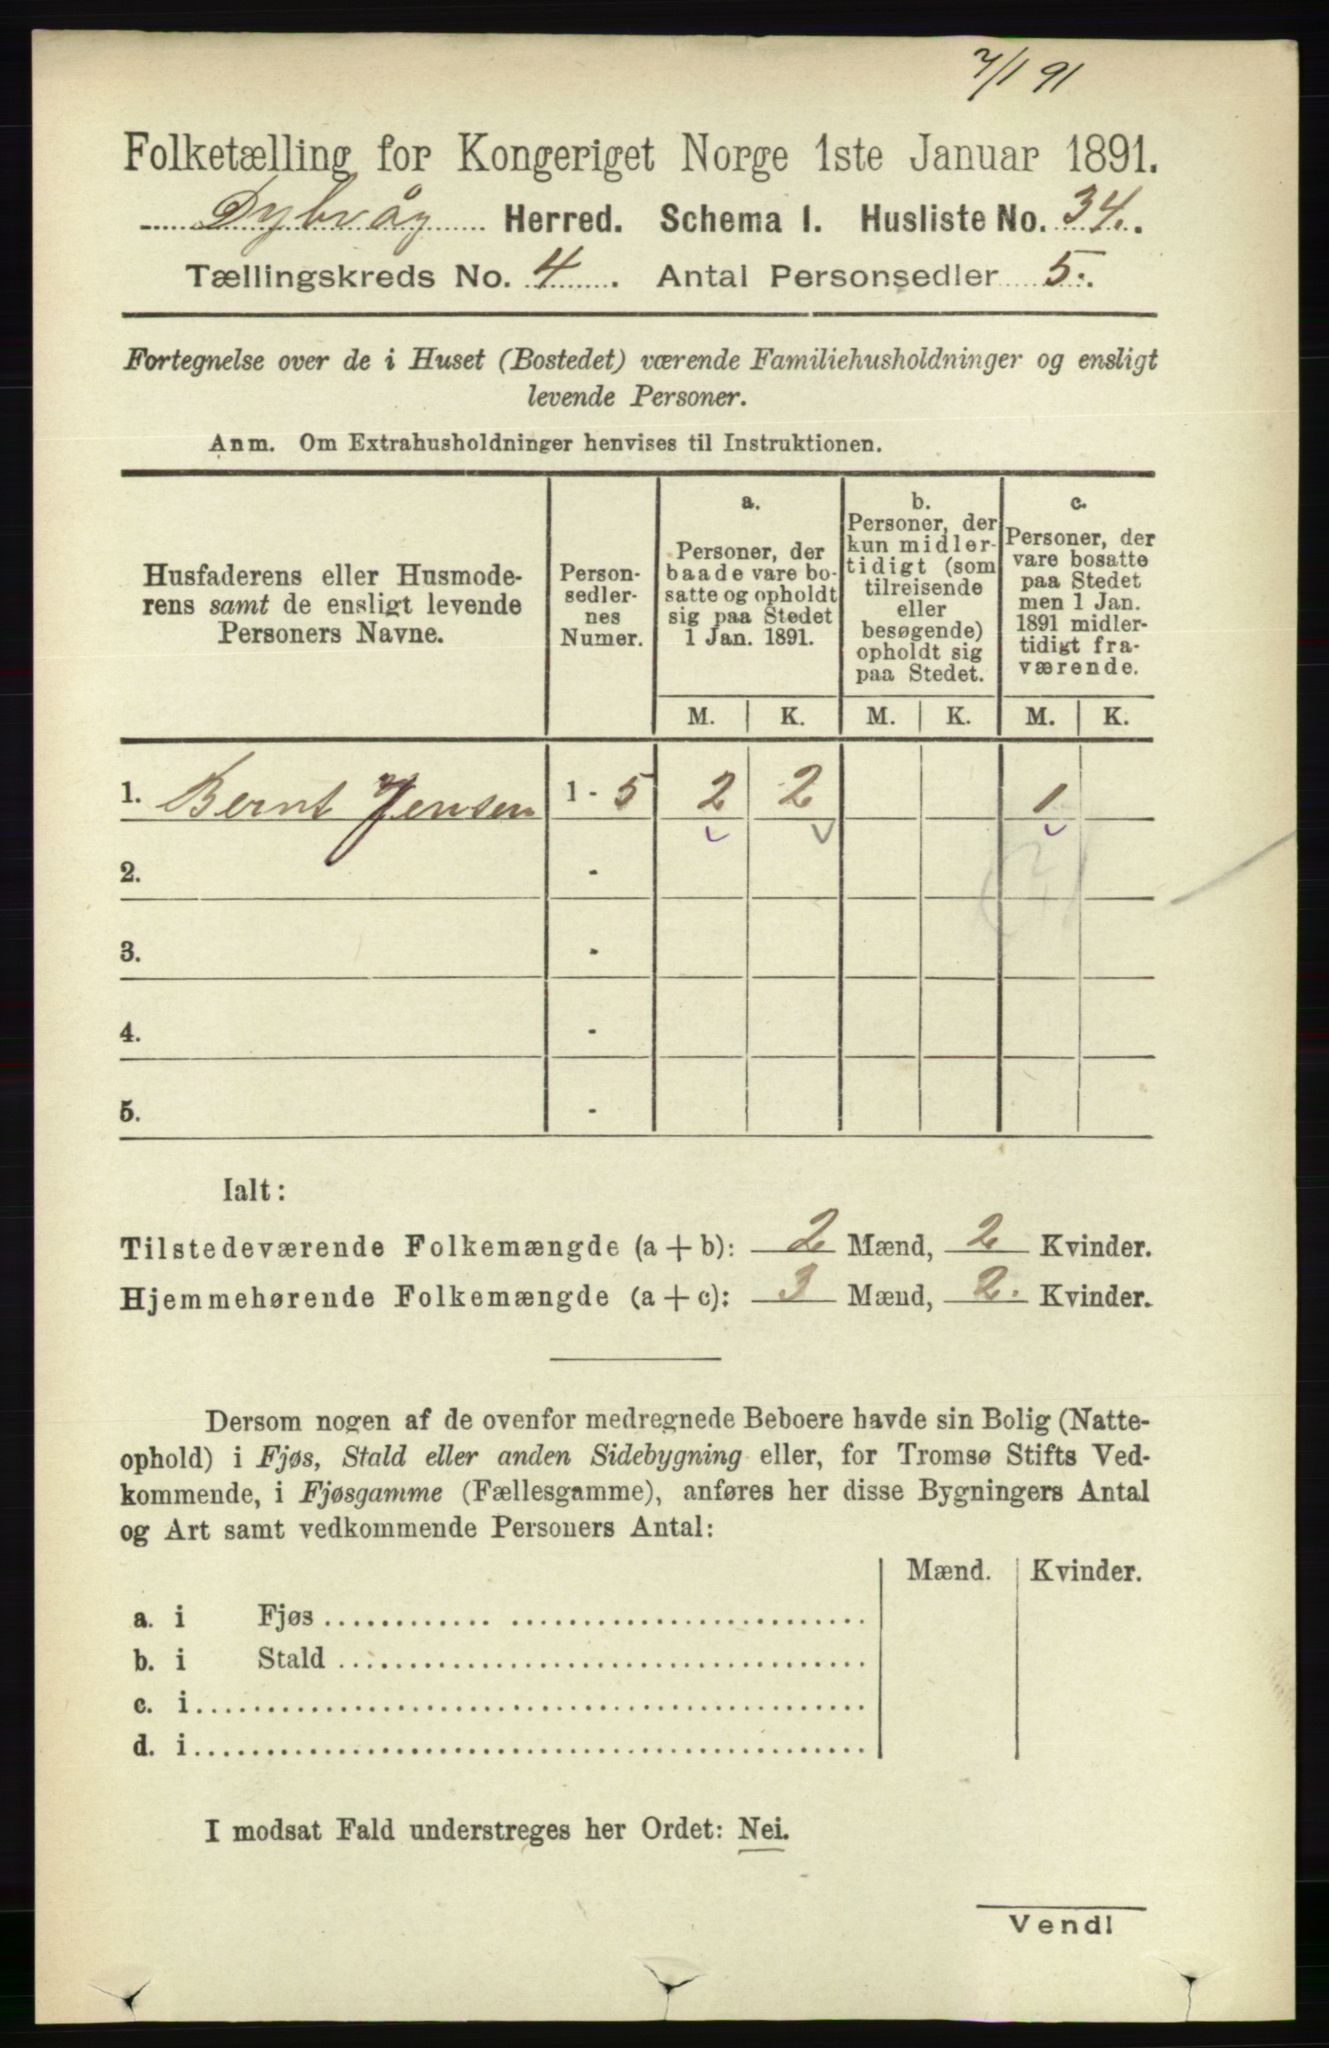 7/1 91
Folketælling for Kongeriget Norge 1ste Januar 1891.
Dybvåg Herred. Schema 1. Husliste No. 34.
Tællingskreds No. 4. Antal Personsedler 5.
Fortegnelse over de i Huset (Bostedet) værende Familiehusholdninger og ensligt
levende Personer.
Anm. Om Extrahusholdninger henvises til Instruktionen.
Husfaderens eller Husmode-
rens samt de ensligt levende
Personers Navne.
Person-
sedler-
nes
Numer.
a.
Personer, der
baade vare bo-
satte og opholdt
sig paa Stedet
1 Jan. 1891.
b.
Personer, der
kun midler-
tidigt (som
tilreisende
eller
besøgende)
opholdt sig
paa Stedet.
c.
Personer, der
vare bosatte
paa Stedet
men 1 Jan.
1891 midler-
tidigt fra-
værende.
M. K. M. K. M. K.
1. Bernt Jensen 1 - 5 2 2 1
2. -
3. -
4. -
5. -
Ialt:
Tilstedeværende Folkemængde (a+b): 2 Mænd, 2 Kvinder.
Hjemmehørende Folkemængde (a+c): 3 Mænd, 2. Kvinder.
Dersom nogen af de ovenfor medregnede Beboere havde sin Bolig (Natte-
ophold) i Fjøs, Stald eller anden Sidebygning eller, for Tromsø Stifts Ved-
kommende, i Fjøsgamme (Fællesgamme), anføres her disse Bygningers Antal
og Art samt vedkommende Personers Antal:
Mænd. Kvinder.
a. i Fjøs
b. i Stald
c. i
d. i
I modsat Fald understreges her Ordet: Nei.
Vend!